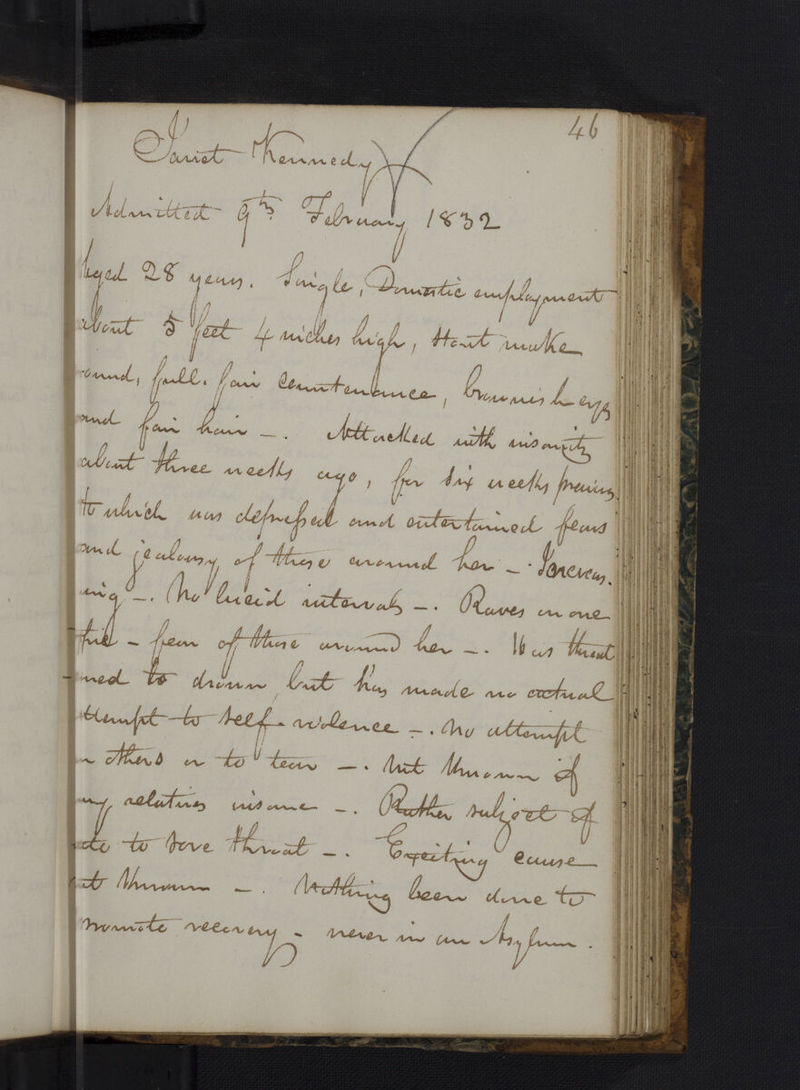 46
Janet Kennedy
Admitted 9th February 1832
Aged 28 years. Single, Domestic employment
about 5 feet 4 inches high, stout make
round, full. fair countenance, brownish eyes
and fair hair —. Attacked with insanity
about three weeks ago, for six weeks previous
to which was depressed and entertained fears
and jealousy of those around her —. Increas-
ing —. No lucid intervals —. Raves on one
— fear of those around her —. Has threat
-ned to drown, but has made no actual
attempt to self-violence —. No attempt
on others or to tear —. Not known if
any relatives insane —. Rather subject of
late to sore throat —. Exciting cause
not known —. Nothing been done to
promote recovery - never in an Asylum.